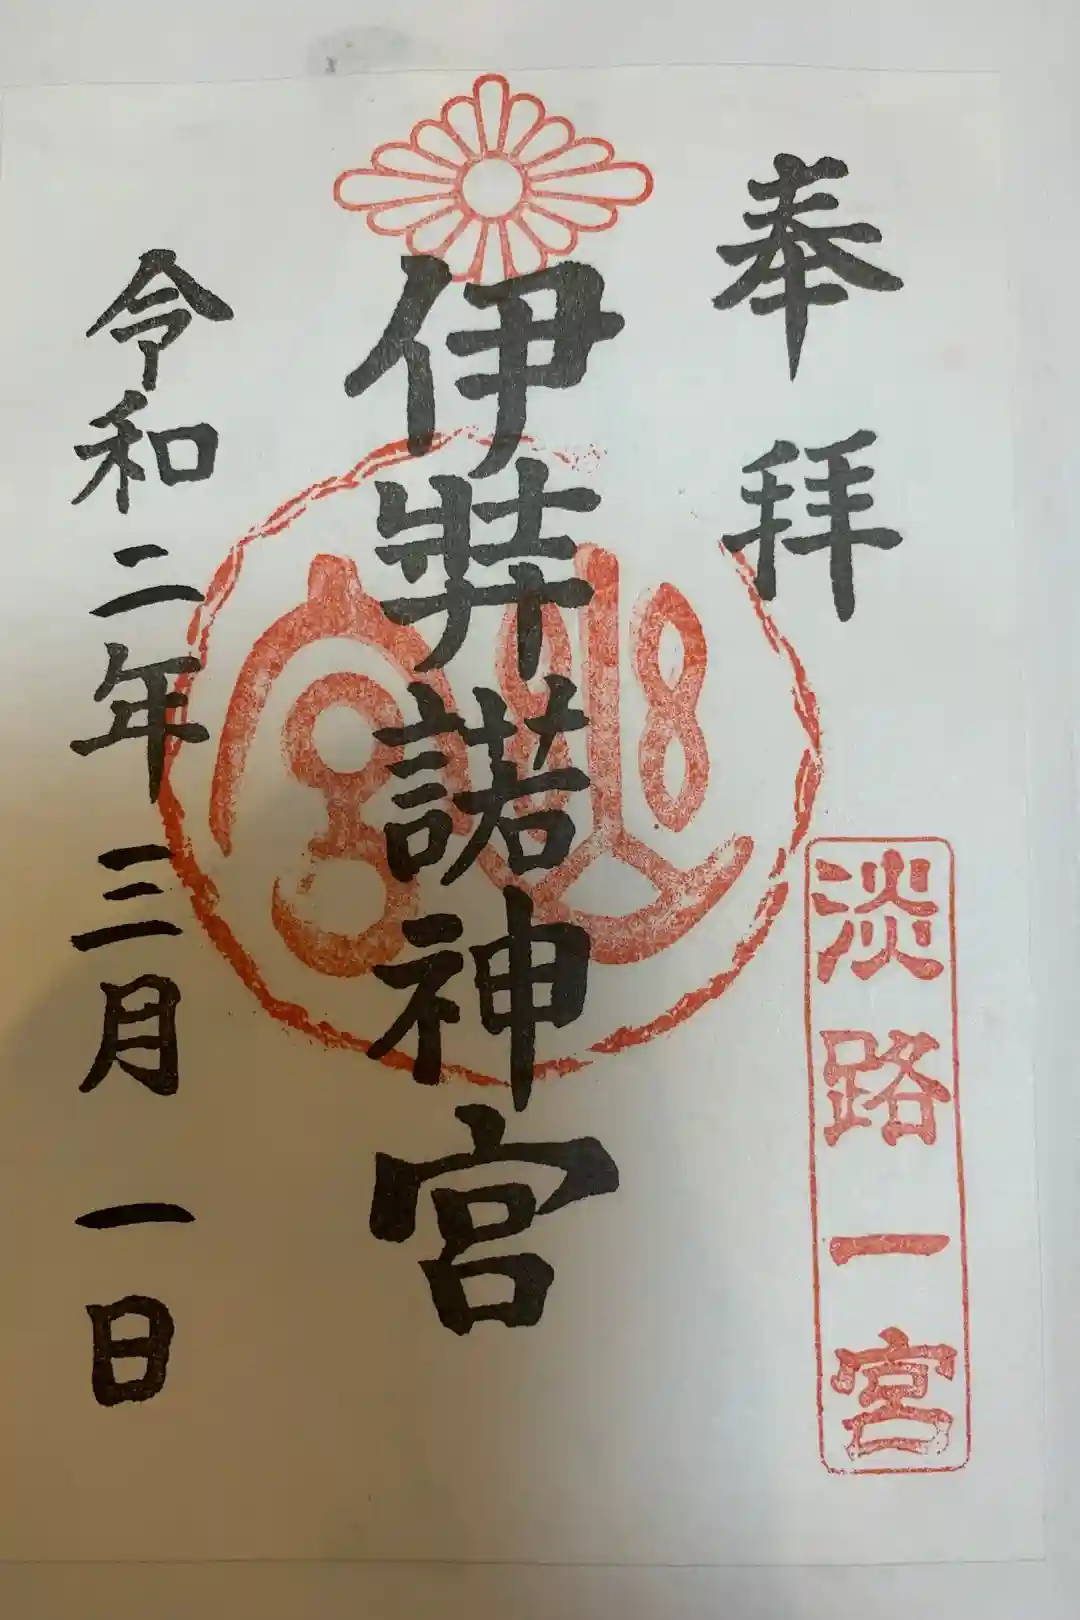 奉拜
淡路一宮
伊弉諾神宮
令和二年三月一日